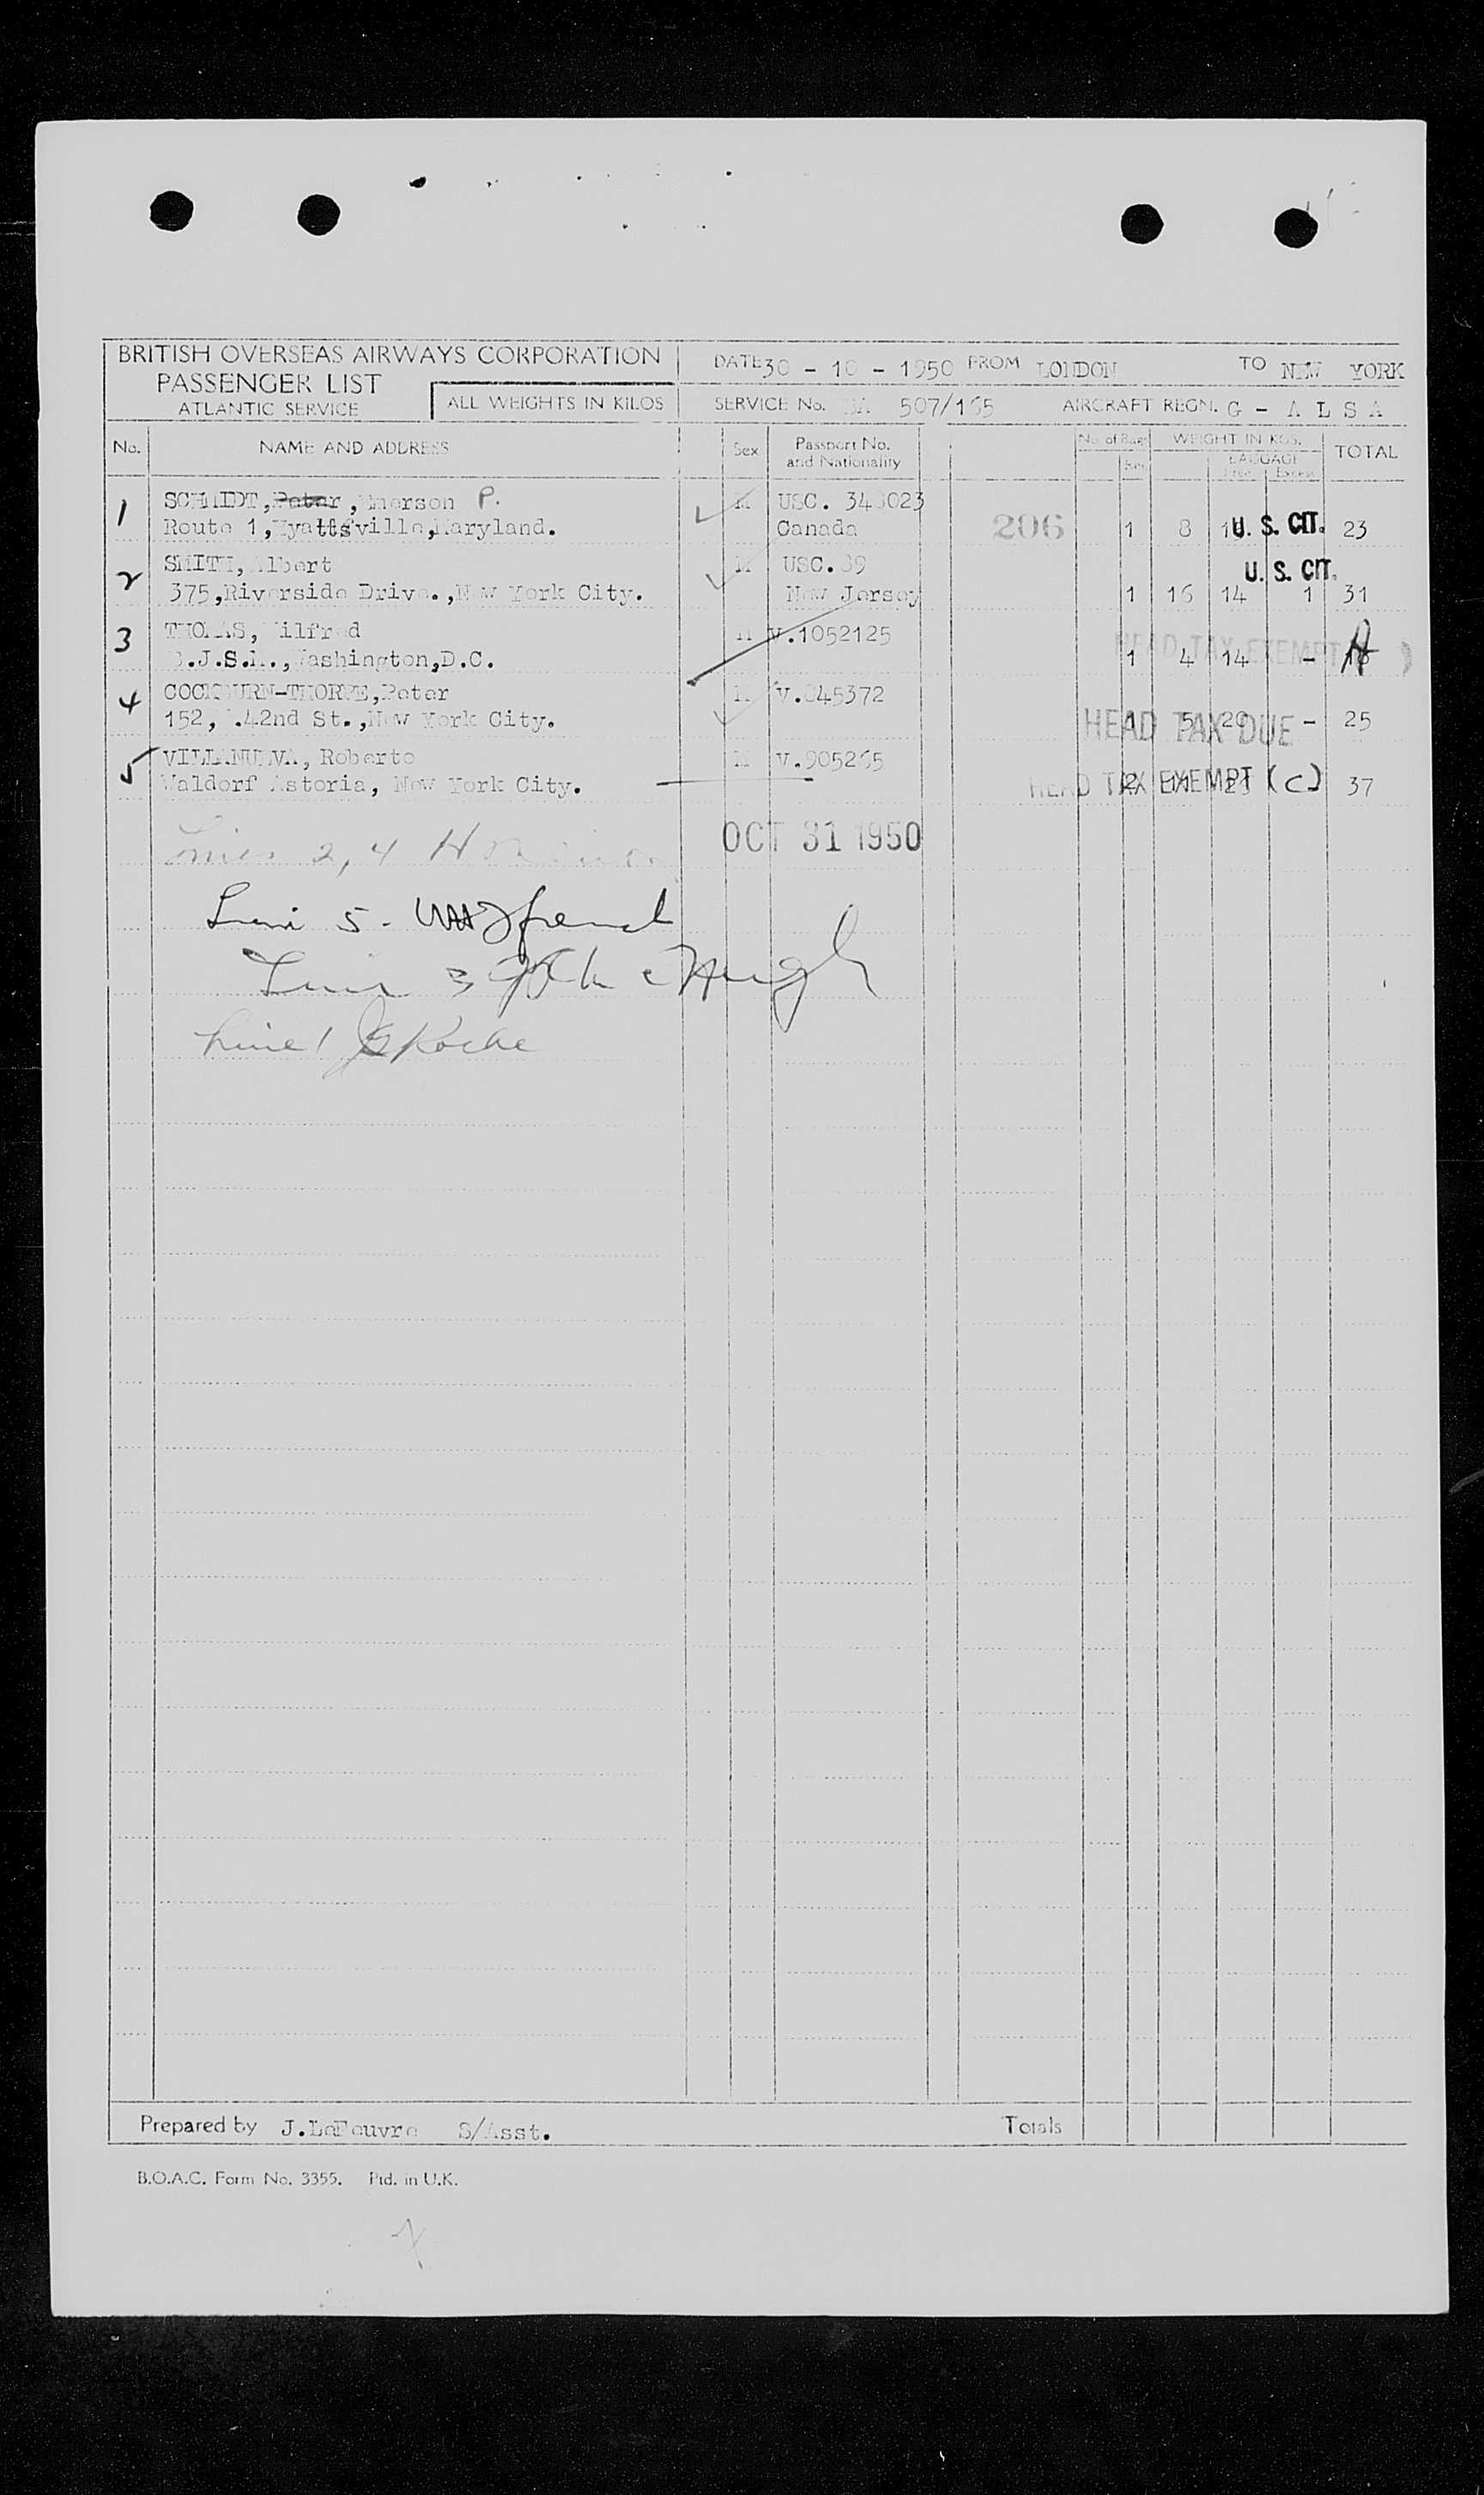 BRITISH OVERSEAS AIRWAYS CORPORATION
PASSENGER LIST
ATLANTIC SERVICE
ALL WEIGHTS IN KILOS
DATE 30 - 10 - 1950 FROM LONDON TO NEW YORK
SERVICE No. BA 507/165 AIRCRAFT REGN. G - A L S A
No. NAME AND ADDRESS Sex Passport No. and Nationality No. of Bags WEIGHT IN KGS. BAGGAGE Free Excess TOTAL
1 SCHMIDT, Peter, Emerson P. M USC. 023
Route 1, Hyattsville, Maryland. Canada 206 1 8 U. S. CIT. 23
2 SMITH, Albert M USC. 39 U. S. CIT.
375, Riverside Drive., New York City. New Jersey 1 16 14 1 31
3 THOMAS, Wilfred M V.1052125 HEAD TAX EXEMPT (A)
B.J.S.M., Washington, D.C. 1 4 14 - 18
4 COCKBURN-THORPE, Peter M V.845372
152, W.42nd St., New York City. HEAD TAX DUE 1 5 20 - 25
5 VILLANUEVA, Roberto M V.905265
Waldorf Astoria, New York City. HEAD TAX EXEMPT (C) 2 37
Lines 2, 4
OCT 31 1950
Line 5 -
Line 3
Line 1 Roche
Prepared by J.LeFeuvre S/Asst. Totals
B.O.A.C. Form No. 3355. Ptd. in U.K.